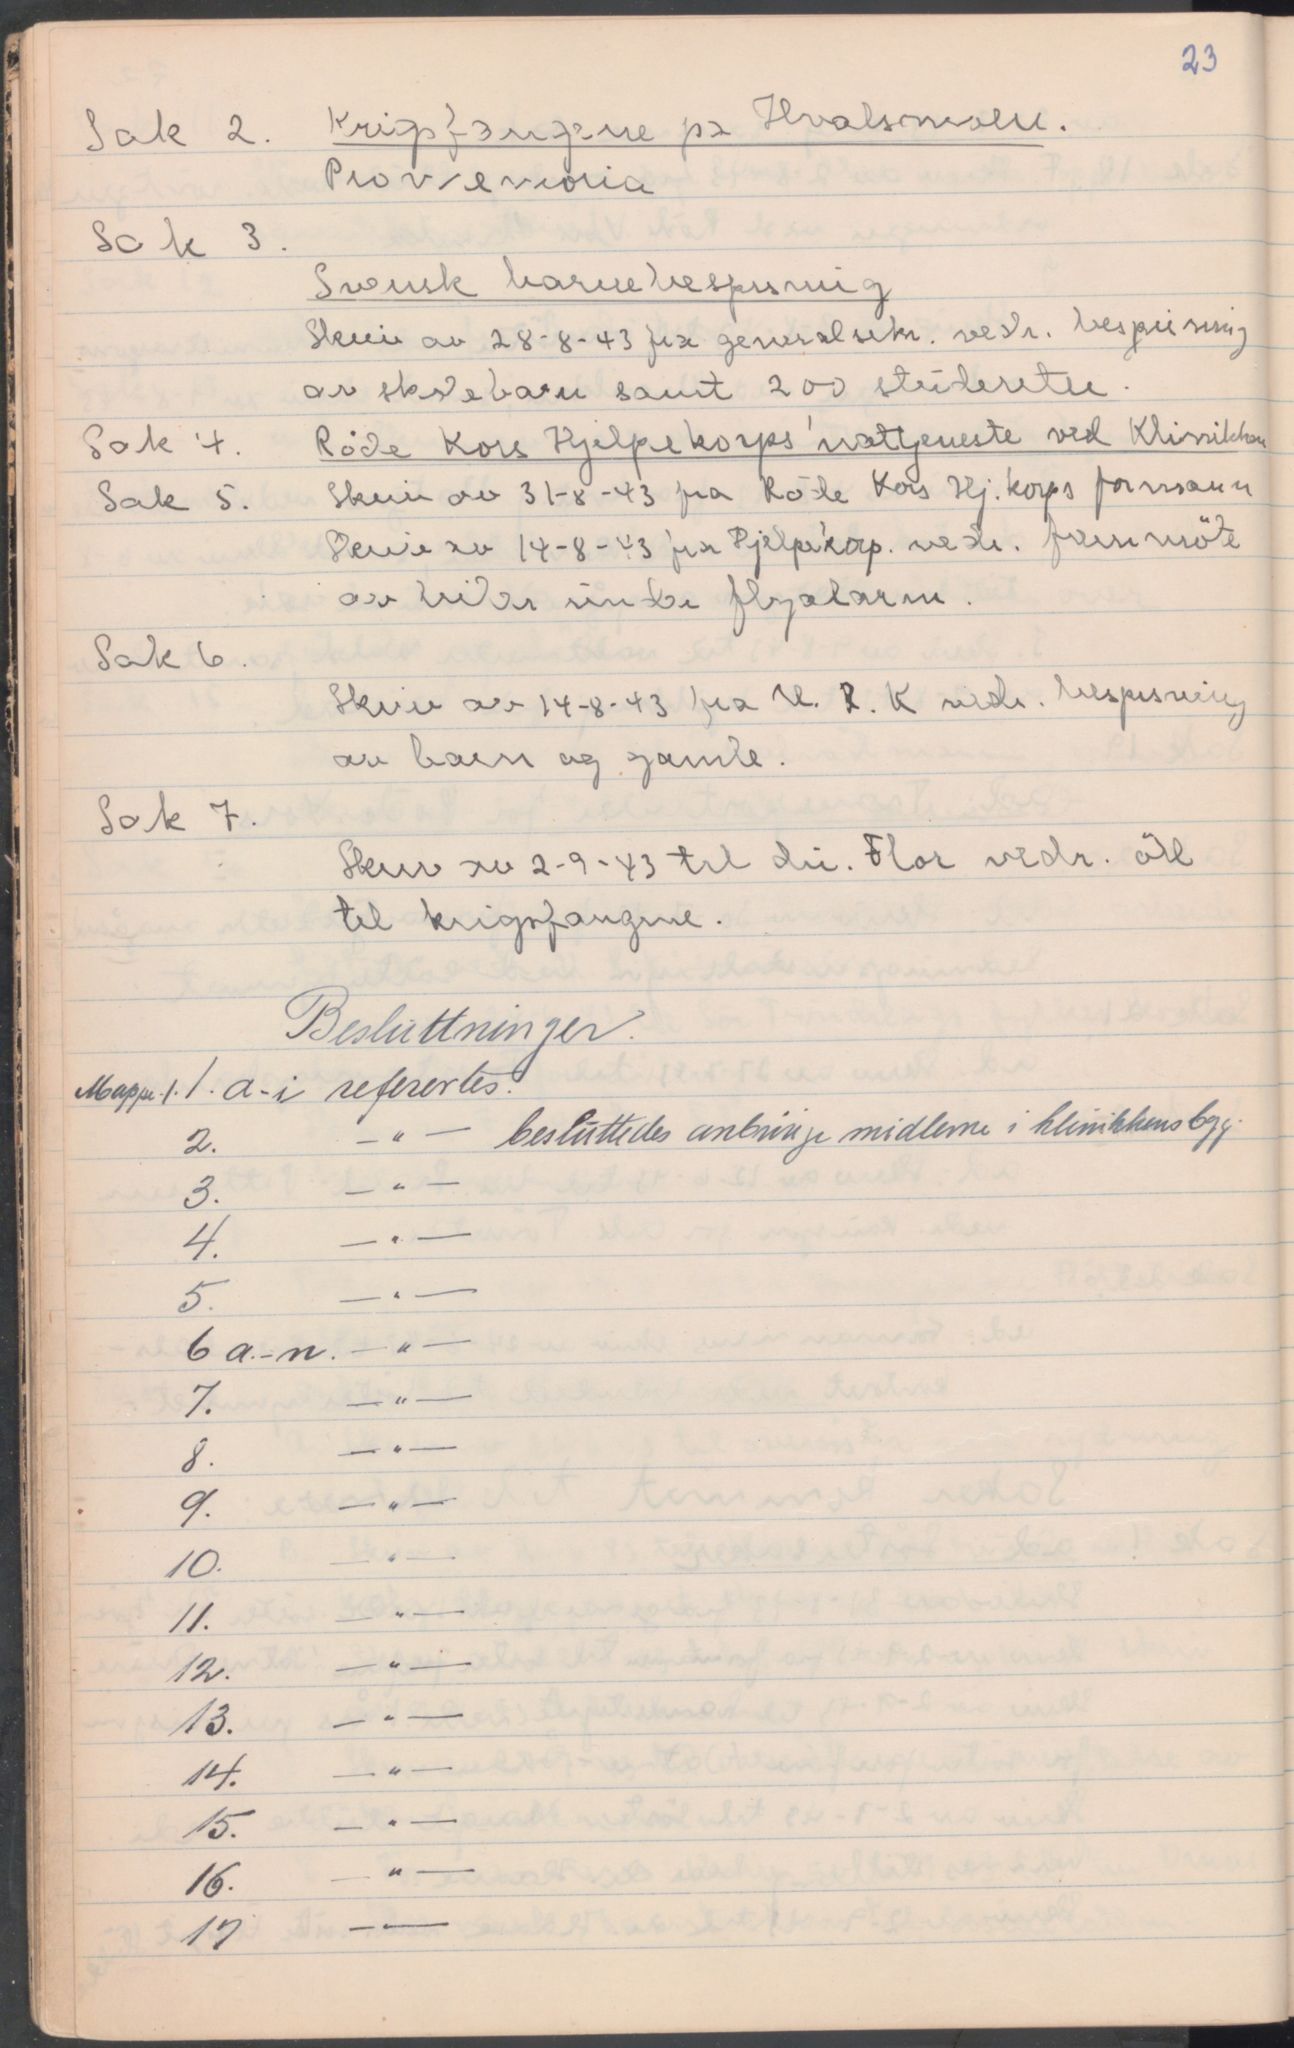 23
Sak 2. Krigsfangene på Hvalsmoen.
Promemoria
Sak 3.
Svensk barnebespisning
Skriv av 28-8-43 fra generalsekr. vedr. bespisning
av skolebarn samt 200 studerete.
Sak 4. Röde Kors Hjelpekorps' nattjeneste ved Klinikken
Sak 5. Skriv av 31-8-43 fra Röde Kors Hj.korps formann
Skriv av 14-8-43 fra Hjelpekorp. vedr. fremmöte
av leider under flyalarm.
Sak 6.
Skriv av 14-8-43 fra N. R. K vedr. bespisning
av barn og gamle.
Sak 7.
Skriv av 2-9-43 til dir. Flor vedr. öll
til krigsfangene.
Besluttninger.
Mappe 1. 1. a-i referertes.
2. —"— besluttedes anbringe midlerne i klinikkens bygg.
3. —"—
4. —"—
5. —"—
6 a.-n. —"—
7. —"—
8. —"—
9. —"—
10. —"—
11. —"—
12. —"—
13. —"—
14. —"—
15. —"—
16. —"—
17 —"—